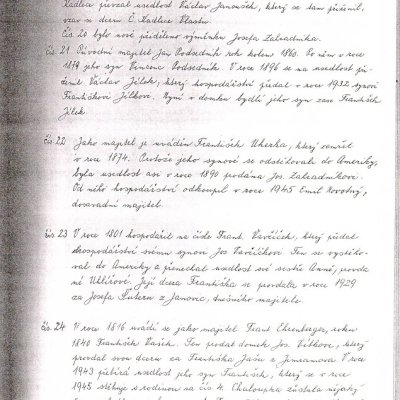 Kadlec převzal usedlost Václav Janoušek, který se tam přiženil,
vzav si dceru Č. Kadlece Vlastu.
čís 20 bylo nově přiděleno výměnku Josefa Zahradníka.
čís. 21 Původní majitel Jan Podsedník rok kolem 1860. Po něm v roce
1874 jeho syn Vincenc Podsedník. V roce 1896 se na usedlost při-
ženil Václav Jílek, který hospodářství předal v roce 1932 synovi
Františkovi Jílkovi. Nyní v domku bydlí jeho syn zase František
Jílek.
čís 22 Jako majitel je uváděn František Uherka, který zemřel
v roce 1874. Protože jeho synové se odstěhovali do Ameriky,
byla usedlost asi v roce 1890 prodána Jos. Zahradníkovi.
Od něho hospodářství odkoupil v roce 1945 Emil Novotný,
dosavadní majitel.
čís 23 V roce 1801 hospodařil na čísle Frant. Vavříček, který předal
hospodářství svému synovi Jos Vavříčkovi Ten se vystěho-
val do Ameriky a přenechal usedlost své sestře Anně, provda
né Uhlířové. Její dcera Františka se provdala v roce 1929
za Josefa z Janovic, dnešního majitele.
čís. 24 V roce 1816 uvádí se jako majitel Frant Ehrenberger, roku
1840 František Vašek. Ten prodal domek Jos. Vítkovi, který
provdal svou dceru za Františka Jašu z Jimramova V roce
1943 přebírá usedlost jeho syn František, který se v roce
1945 stěhuje s rodinou na čís 4. Chaloupka zůstala nějaký